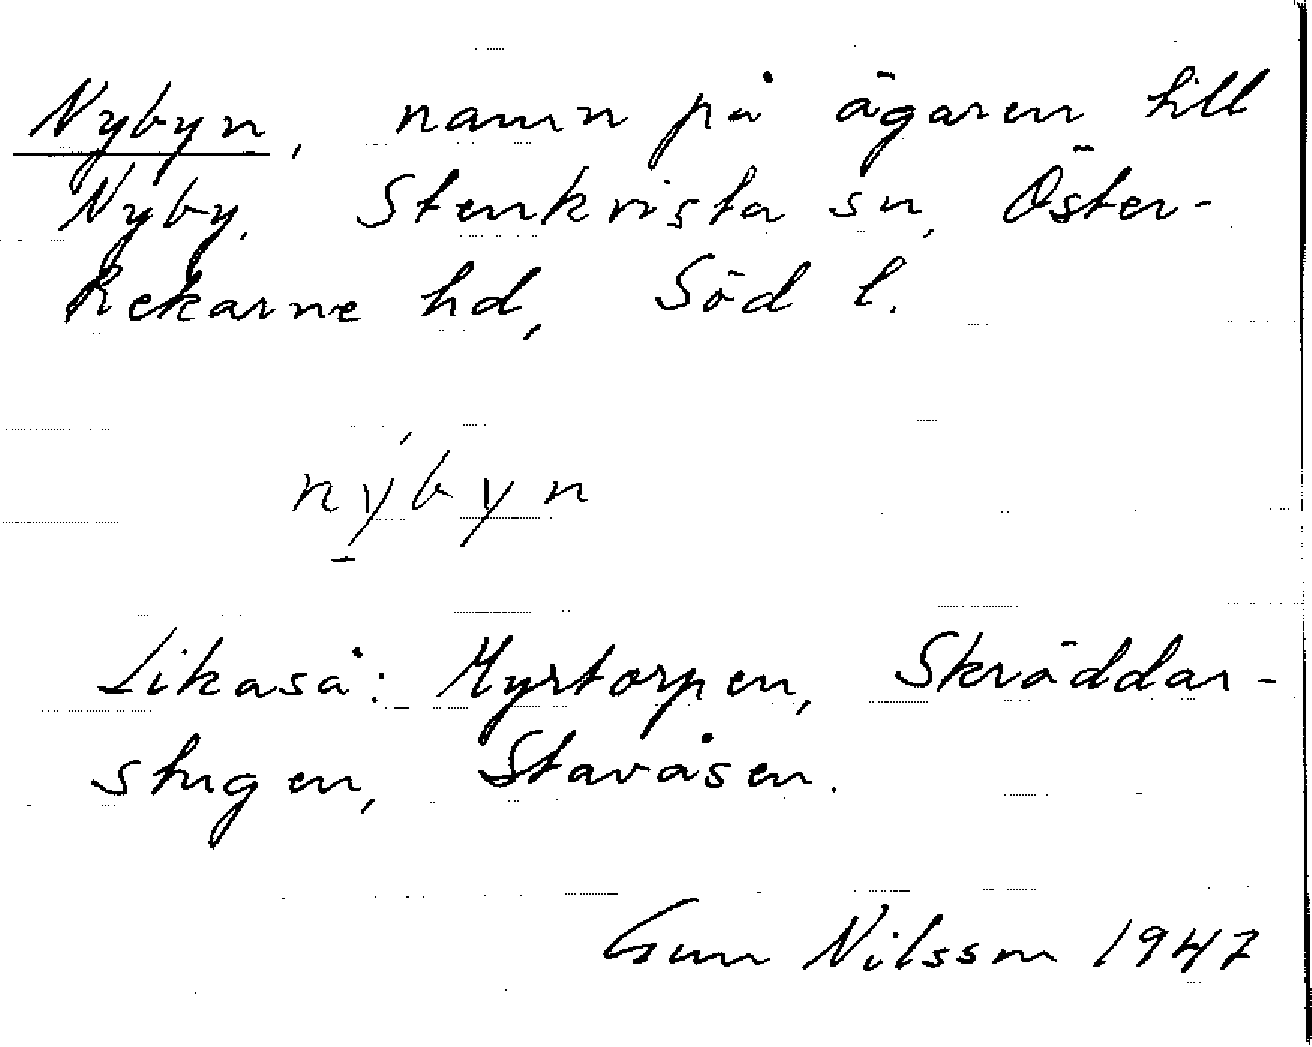 Nybyn, namn på ägaren till
Nyby. Stenkvista sn, Öster-
Rekarne hd, Söd l.
nýbyn
Likaså: Myrtorpen, Skräddar-
stugen, Stavåsen.
Gun Nilsson 1947